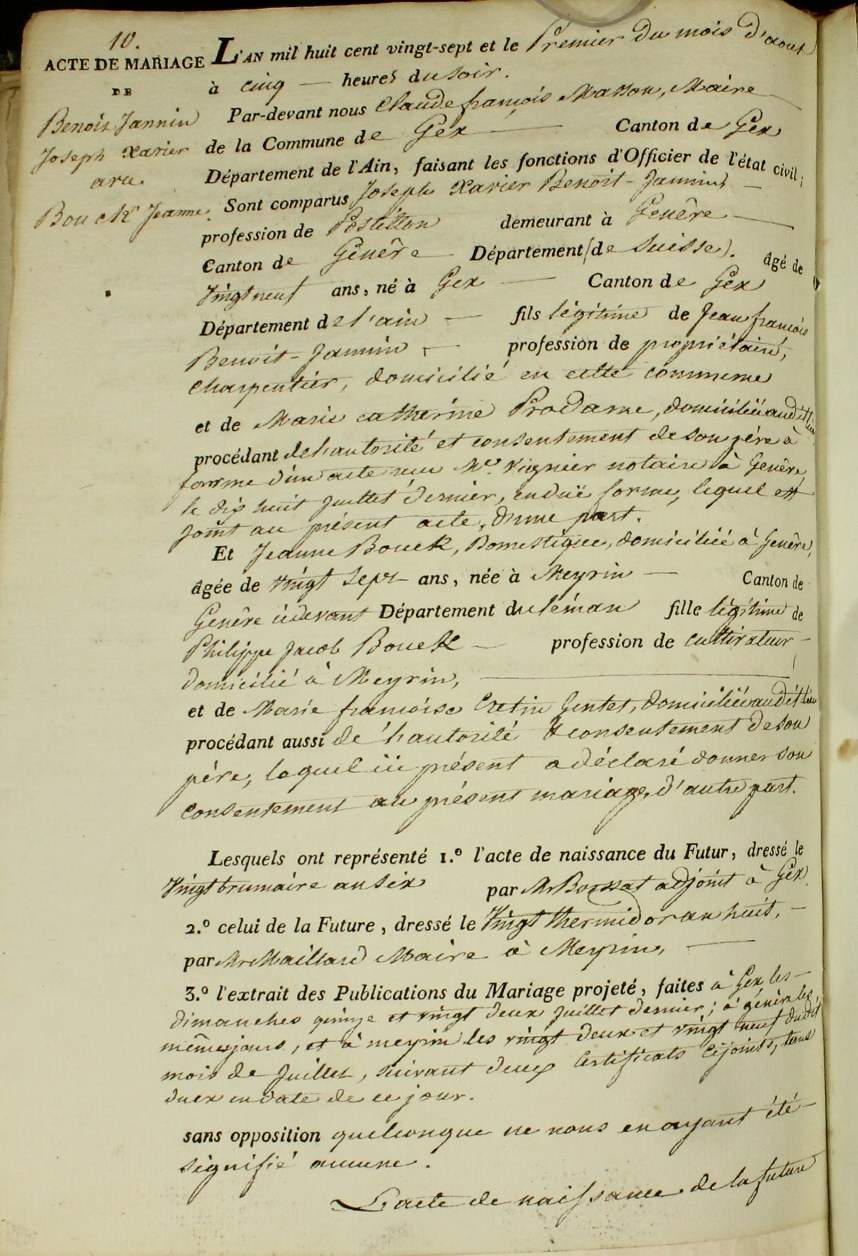 10.
ACTE DE MARIAGE
DE
Benoit Jannin
Joseph Xavier
avec
Bouck Jeanne.
L'AN mil huit cent vingt-sept et le Premier du mois d'aout
à cinq — heures du soir.
Par-devant nous Claude françois Masson, Maire
de la Commune de Gex — Canton de Gex
Département de l'Ain, faisant les fonctions d'Officier de l'état civil;
Sont comparus Joseph Xavier Benoit-Jannin —
profession de Postillon demeurant à Genêve —
Canton de Genêve Département (de Suisse). âgé de
Vingt neuf ans, né à Gex — Canton de Gex
Département de l'ain — fils légitime de Jean françois
Benoit-Jannin — profession de propriétaire,
Charpentier, domicilié en cette commune
et de Marie catherine Prodame, domiciliée audit lieu
procédant de l'autorité et consentement de son père à
forme d'un acte reçu Me. Vignier notaire à Genêve,
le dix huit Juillet dernier, en duë forme, lequel est
joint au présent acte, d'une part.
Et Jeanne Bouck, Domestique, domiciliée à Genêve,
âgée de vingt Sept ans, née à Meyrin — Canton de
Genêve cidevant Département du léman fille légitime de
Philippe Jacob Bouck — profession de cultivateur —
domicilié à Meyrin, —
et de Marie françoise Cretin Gentet, domiciliée audit lieu
procédant aussi de l'autorité & consentement de son
père, lequel ici présent a déclaré donner son
consentement au présent mariage, d'autre part.
Lesquels ont représenté 1.º l'acte de naissance du Futur, dressé le
Vingt brumaire an six par Mr adjoint à Gex
2.º celui de la Future, dressé le Vingt thermidor an huit, —
par Mr Maillard Maire à Meyrin, —
3.º l'extrait des Publications du Mariage projeté, faites à Gex les
dimanches quinze et vingt deux Juillet dernier; à génève les
mêmes jours, et à meyrin les vingt deux et vingt neuf dudit
mois de Juillet, suivant deux Certificats cijoints, tous
deux en date de ce jour.
sans opposition quelconque ne nous en ayant été
signifié aucune.
L'acte de naissance de la future